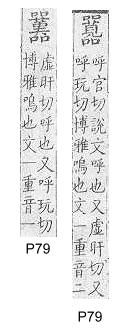 呼官切說文呼也又虛肝切又
呼玩切博雅鳴也文一重音二
P79
虛肝切呼也又呼玩切
博雅鳴也文一重音一
P79